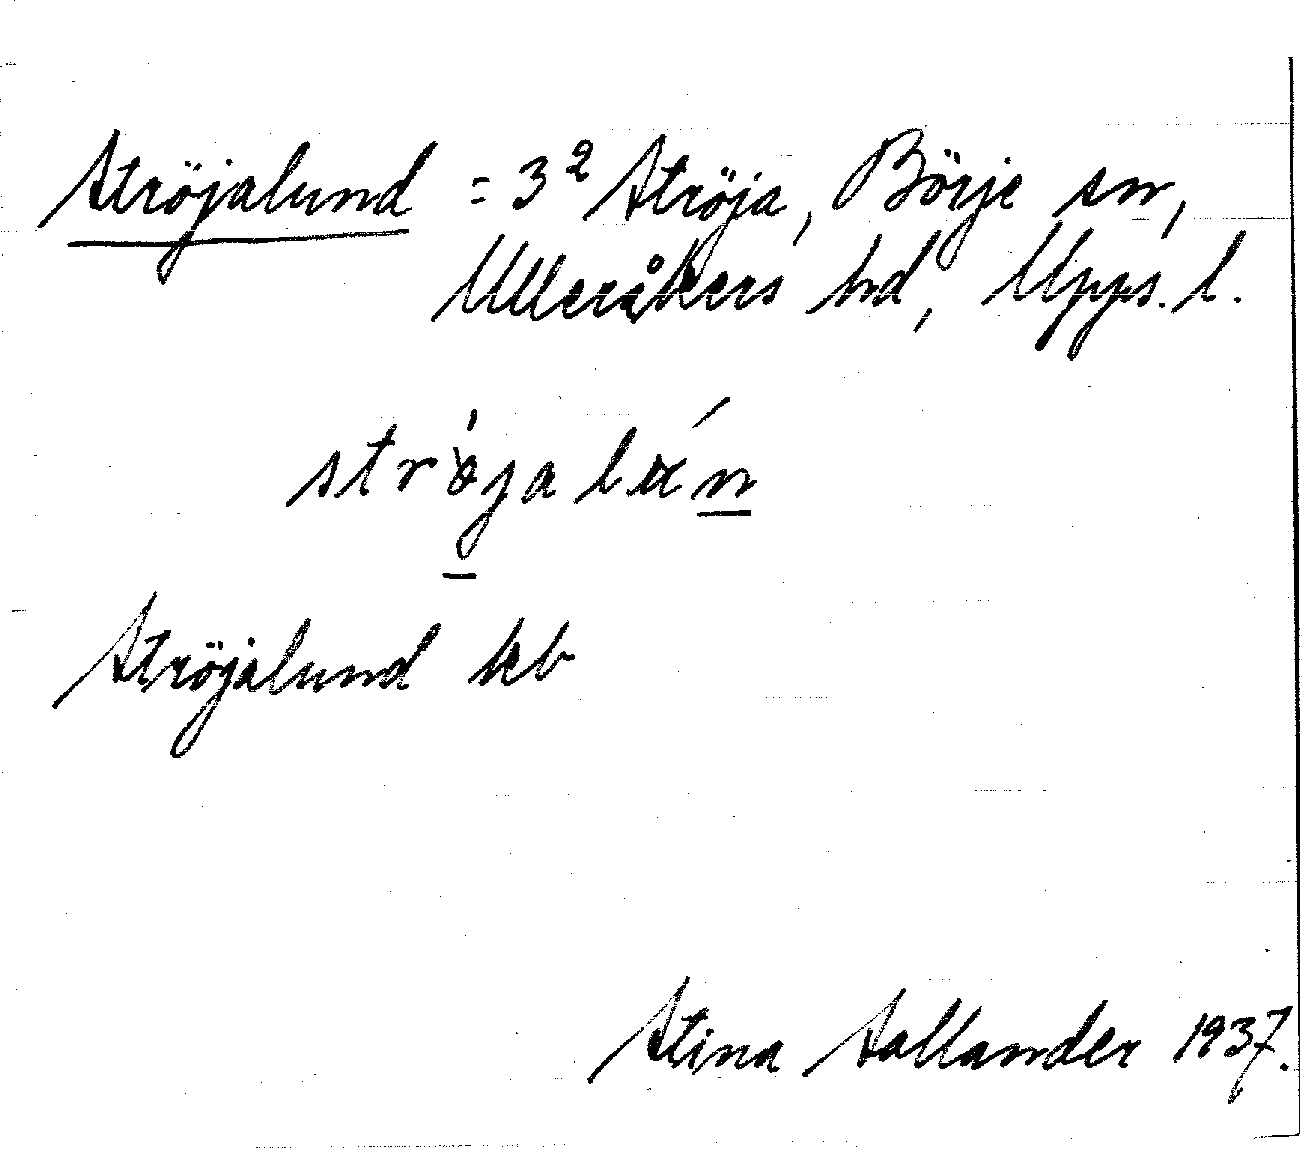 Ströjalund = 3² Ströja, Börje sn,
Ulleråkers hd, Upps. l.
Ströjalund kb
Stina Sallander 1937.